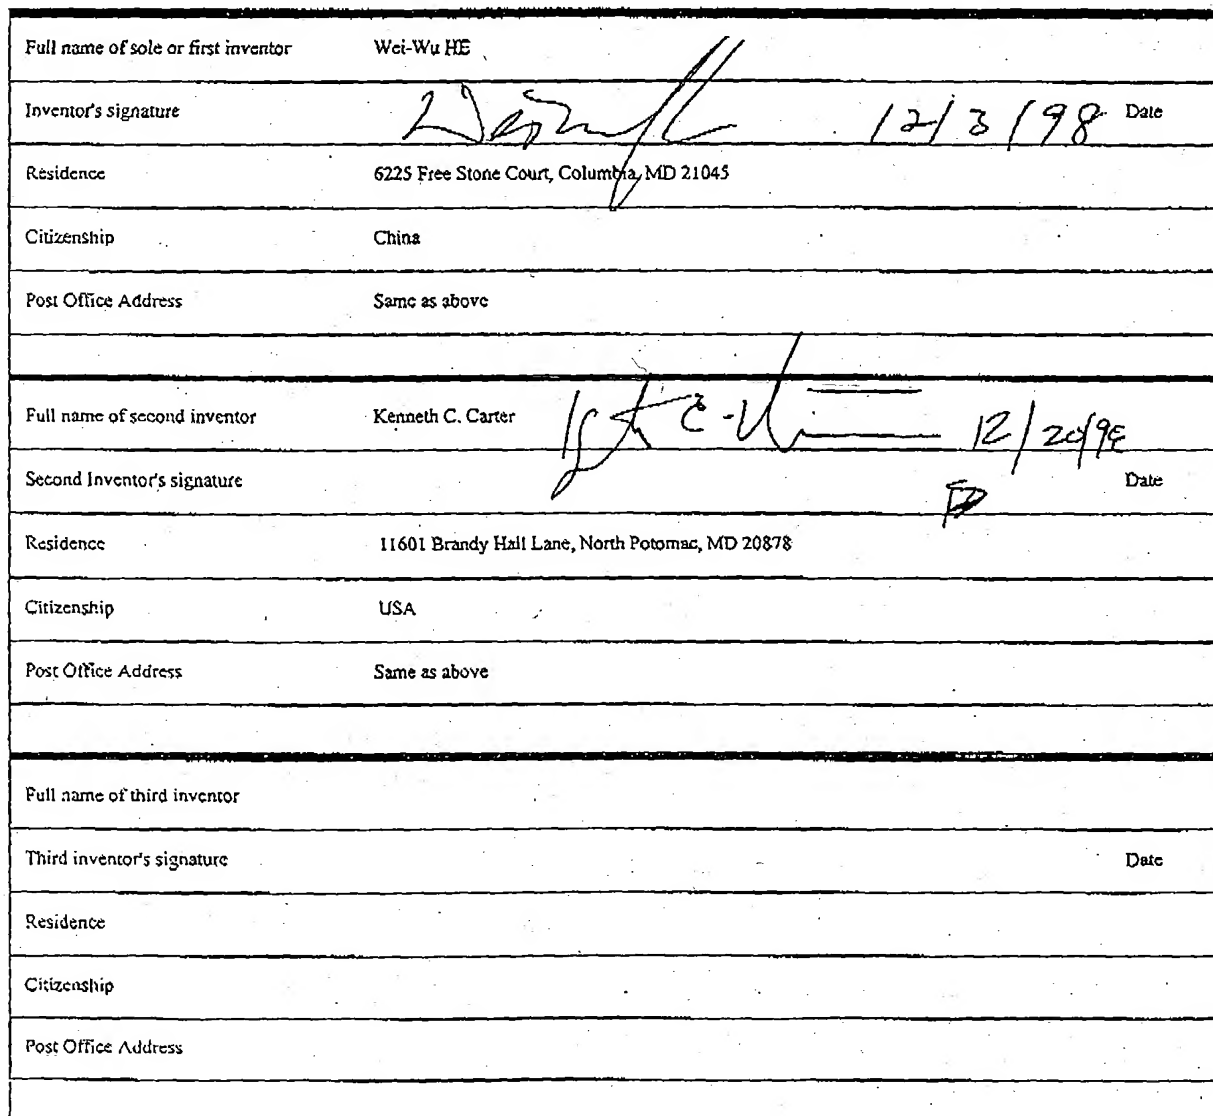 Full name of sole or first inventor Wei-Wu HE
Inventor's signature 12/3/98 Date
Residence 6225 Free Stone Court, Columbia, MD 21045
Citizenship China
Post Office Address Same as above
Full name of second inventor Kenneth C. Carter 12/20/98
Second Inventor's signature Date
Residence 11601 Brandy Hall Lane, North Potomac, MD 20878
Citizenship USA
Post Office Address Same as above
Full name of third inventor
Third inventor's signature Date
Residence
Citizenship
Post Office Address